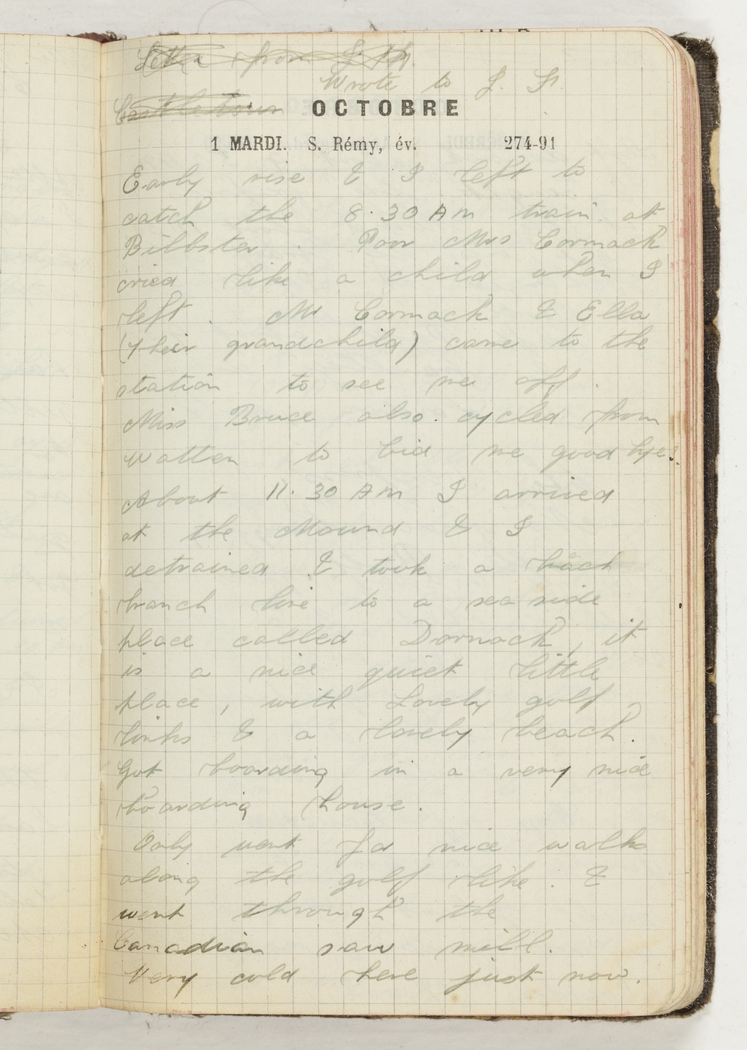 Letter from J. H.
Wrote to J. F.
Castletown
OCTOBRE
1 MARDI. S. Rémy, év. 274-91
Early rise & I left to
catch the 8.30 AM train at
Bilbster. Poor Mrs Cormack
cried like a child when I
left. Mr Cormack & Ella
(their grandchild) came to the
station to see me off.
Miss Bruce also cycled from
Watten to bid me goodbye!
About 11.30 AM I arrived
at the Mound & I
detrained & took a
branch line to a sea side
place called Dornock, it
is a nice quiet little
place, with Lovely golf
links & a lovely beach.
Got boarding in a very nice
boarding house.
Only went for nice walk
along the golf like. &
went through the
Canadian saw mill.
Very cold here just now.